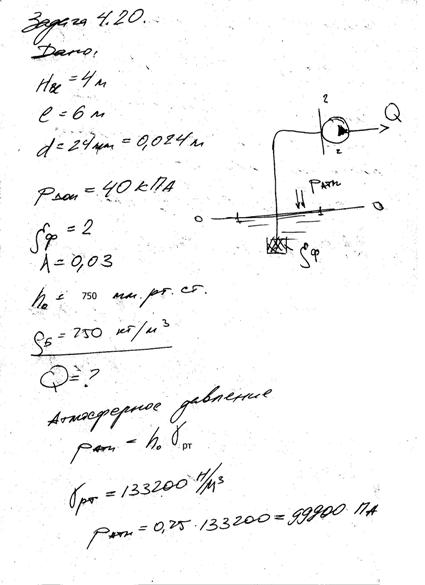 Задача 4.20.
Дано:
Hвс = 4 м
l = 6 м
d = 24 мм = 0,024 м
Pдоп = 40 кПА
ζф = 2
λ = 0,03
h₀ = 750 мм. рт. ст.
ρБ = 750 кг/м³
Q = ?
2
Q
2
Pатм
0
0
ζф
Атмосферное давление
Pатм = h₀ γрт
γрт = 133200 Н/м³
Pатм = 0,75 · 133200 = 99900 ПА